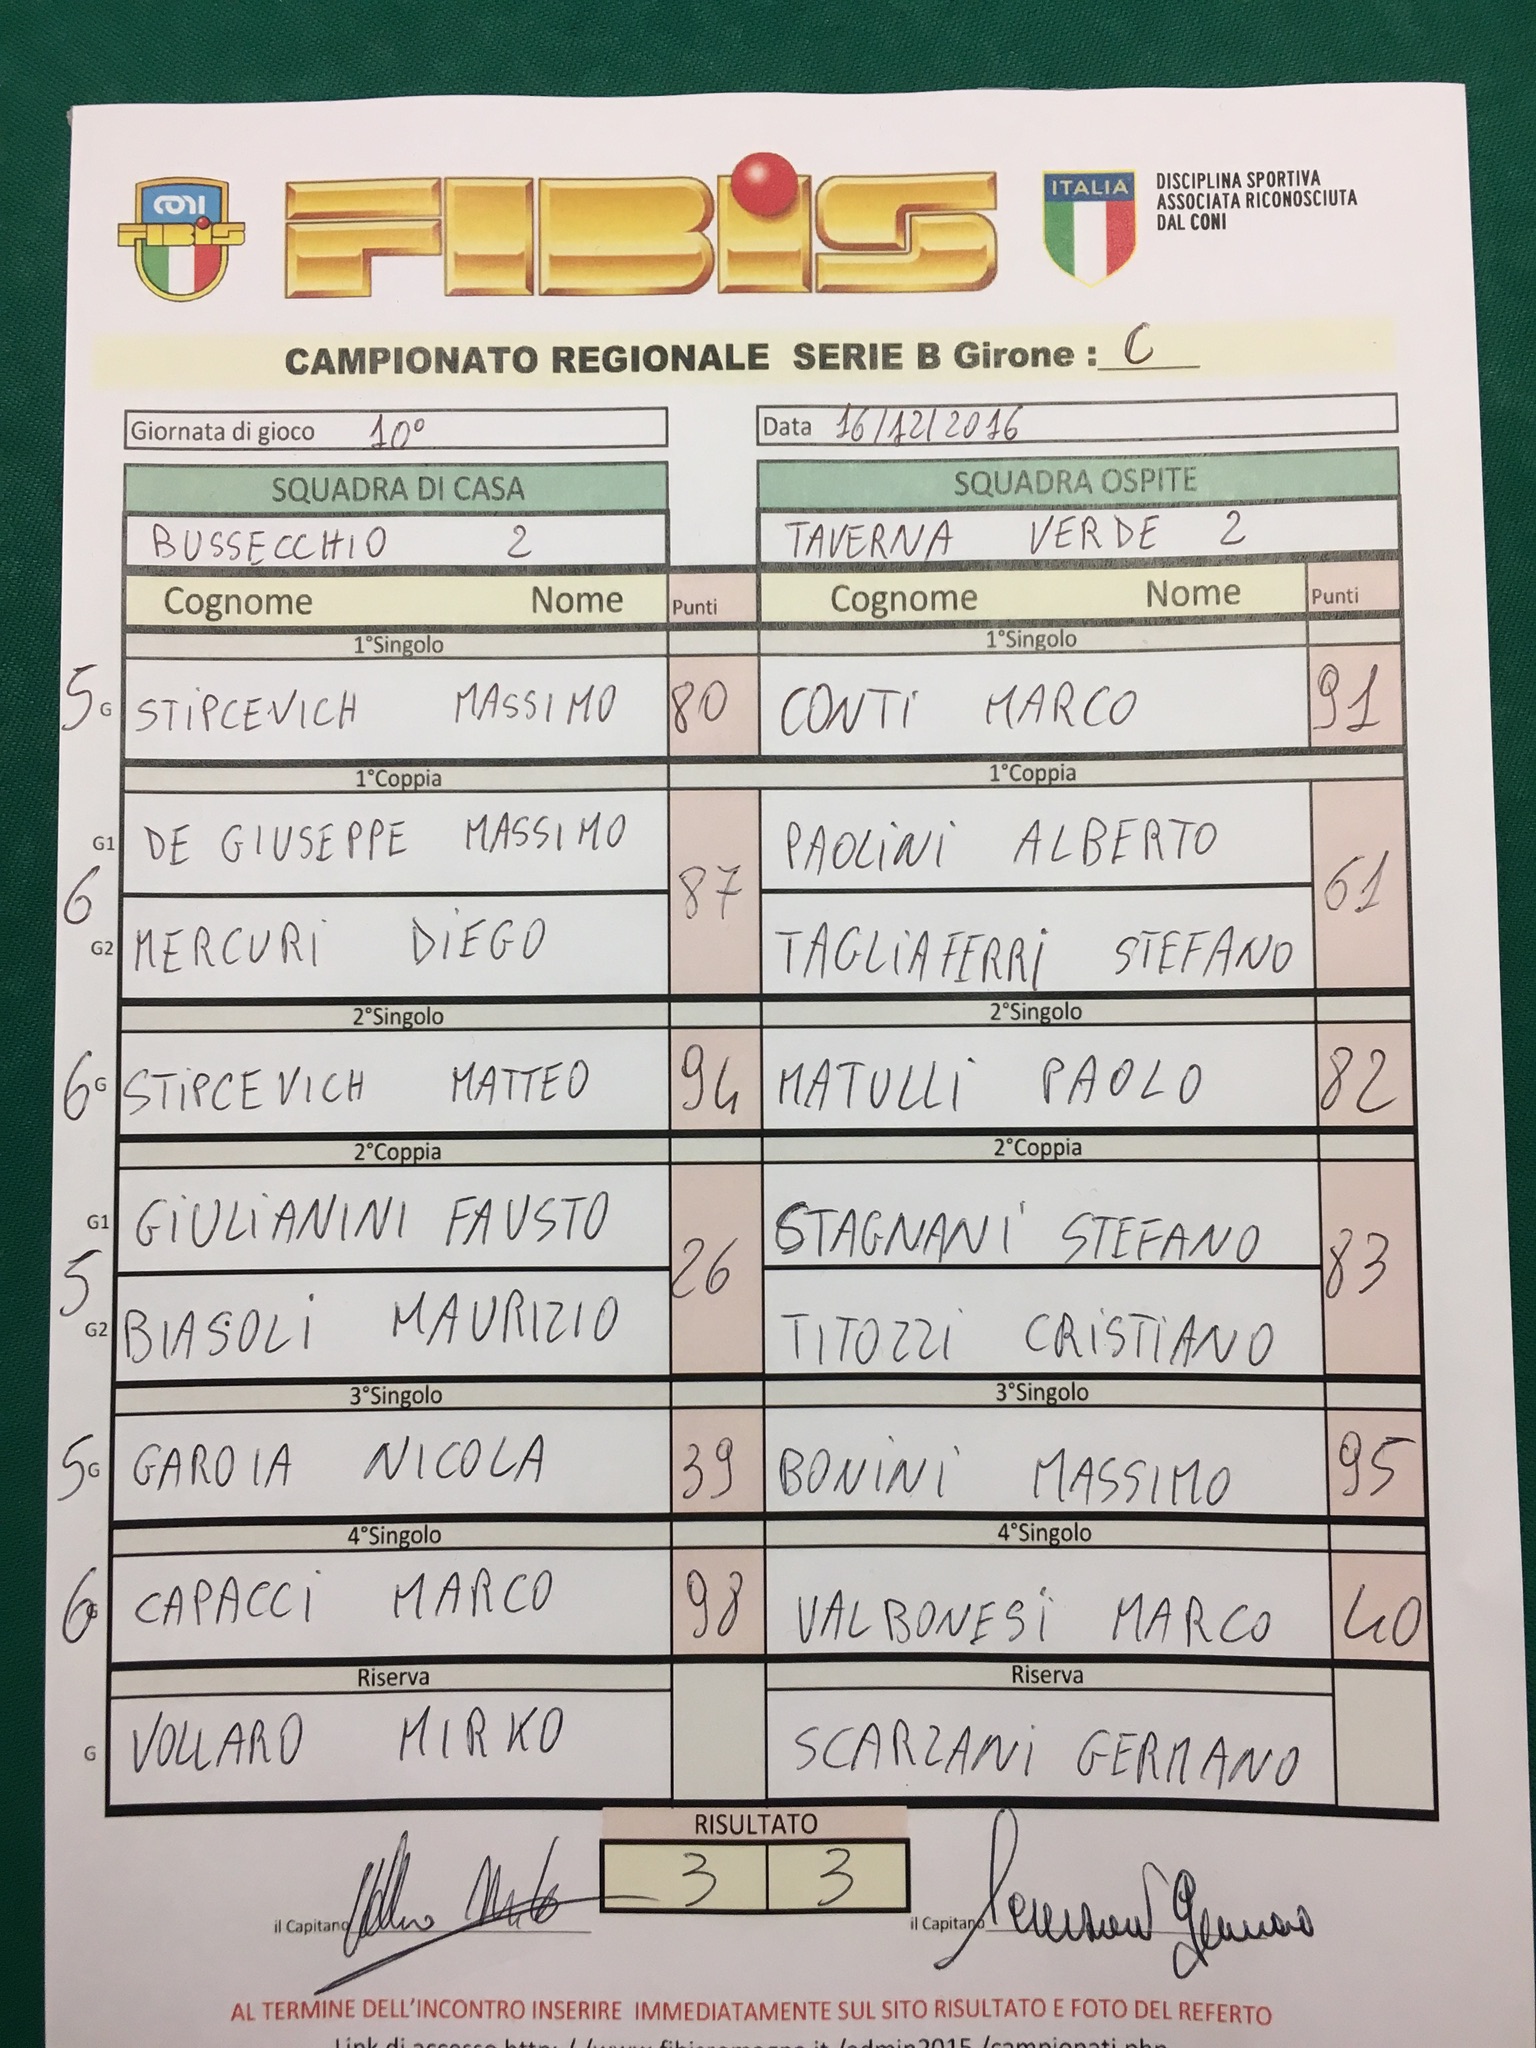 CONI
FIBiS
FIBiS
ITALIA
DISCIPLINA SPORTIVA
ASSOCIATA RICONOSCIUTA
DAL CONI
CAMPIONATO REGIONALE SERIE B Girone : C
Giornata di gioco 10°
Data 16/12/2016
SQUADRA DI CASA SQUADRA OSPITE
BUSSECCHIO 2 TAVERNA VERDE 2
Cognome Nome Punti Cognome Nome Punti
1°Singolo 1°Singolo
5 G STIPCEVICH MASSIMO 80 CONTI MARCO 91
1°Coppia 1°Coppia
G1 DE GIUSEPPE MASSIMO PAOLINI ALBERTO
6 87 61
G2 MERCURI DIEGO TAGLIAFERRI STEFANO
2°Singolo 2°Singolo
6 G STIPCEVICH MATTEO 94 MATULLI PAOLO 82
2°Coppia 2°Coppia
G1 GIULIANINI FAUSTO STAGNANI STEFANO
5 26 83
G2 BIASOLI MAURIZIO TITOZZI CRISTIANO
3°Singolo 3°Singolo
5 G GAROIA NICOLA 39 BONINI MASSIMO 95
4°Singolo 4°Singolo
6 G CAPACCI MARCO 98 VALBONESI MARCO 40
Riserva Riserva
G VOLLARO MIRKO SCARZANI GERMANO
RISULTATO
3 3
il Capitano il Capitano
AL TERMINE DELL'INCONTRO INSERIRE IMMEDIATAMENTE SUL SITO RISULTATO E FOTO DEL REFERTO
Link di accesso http://www.fibisromagna.it/admin2015/campionati.php